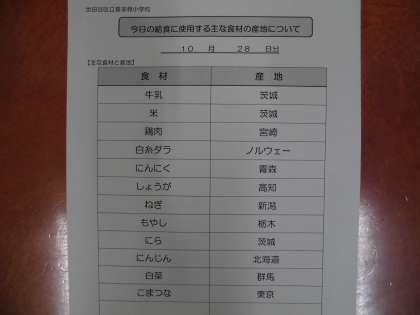 今日の給食に使用する主な食材の産地について
10 月 28 日分
【主な食材と産地】
食 材 産 地
牛乳 茨城
米 茨城
鶏肉 宮崎
白糸ダラ ノルウェー
にんにく 青森
しょうが 高知
ねぎ 新潟
もやし 栃木
にら 茨城
にんじん 北海道
白菜 群馬
こまつな 東京